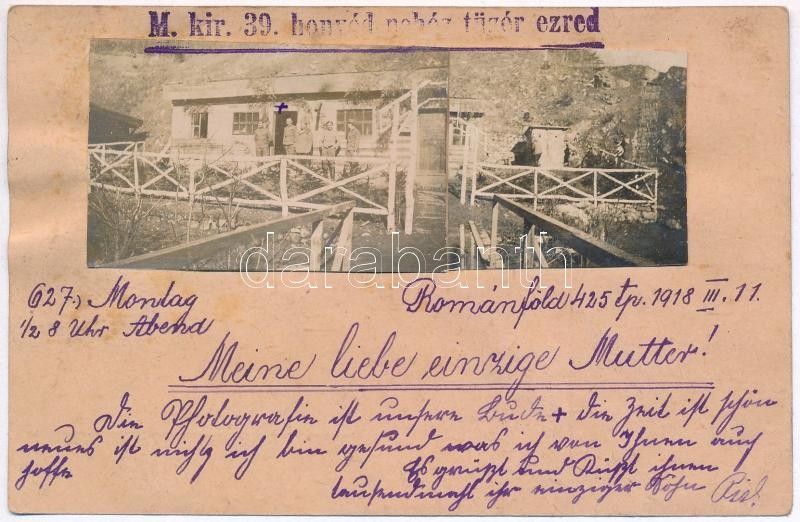 M. kir. 39. honvéd nehéz tüzér ezred
darabanth
627.) Montag
Románföld 425 tp. 1918 III. 11.
1/2 8 Uhr Abend
Meine liebe einzige Mutter!
Die Pfotografie ist unsere Bude + die Zeit ist schön
neues ist nichts ich bin gesund was ich von Ihnen auch
hoffe
Es grüßt und küßt ihnen
tausendmahl ihr einziger Sohn